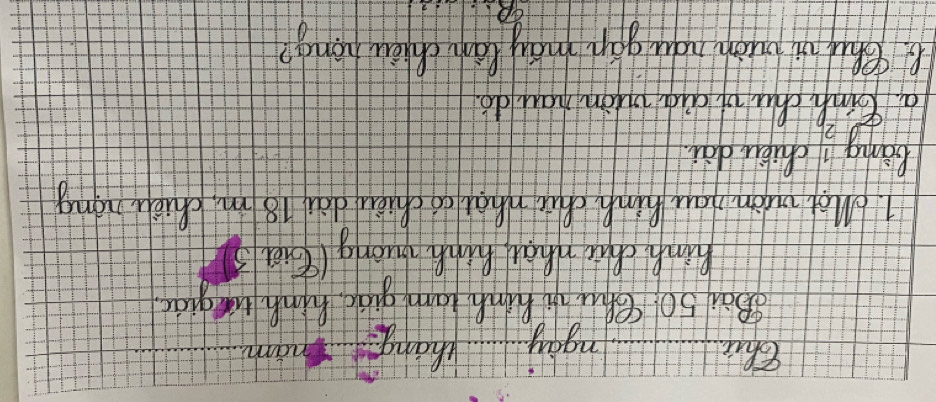 Thứ............, ngày........tháng........năm..................
Bài 50: Chu vi hình tam giác, hình tứ giác,
hình chữ nhật, hình vuông (Tiết 3)
1. Một vườn rau hình chữ nhật có chiều dài 18 m, chiều rộng
bằng 1/2 chiều dài.
a. Tính chu vi của vườn rau đó.
b. Chu vi vườn rau gấp mấy lần chiều rộng?
Bài giải